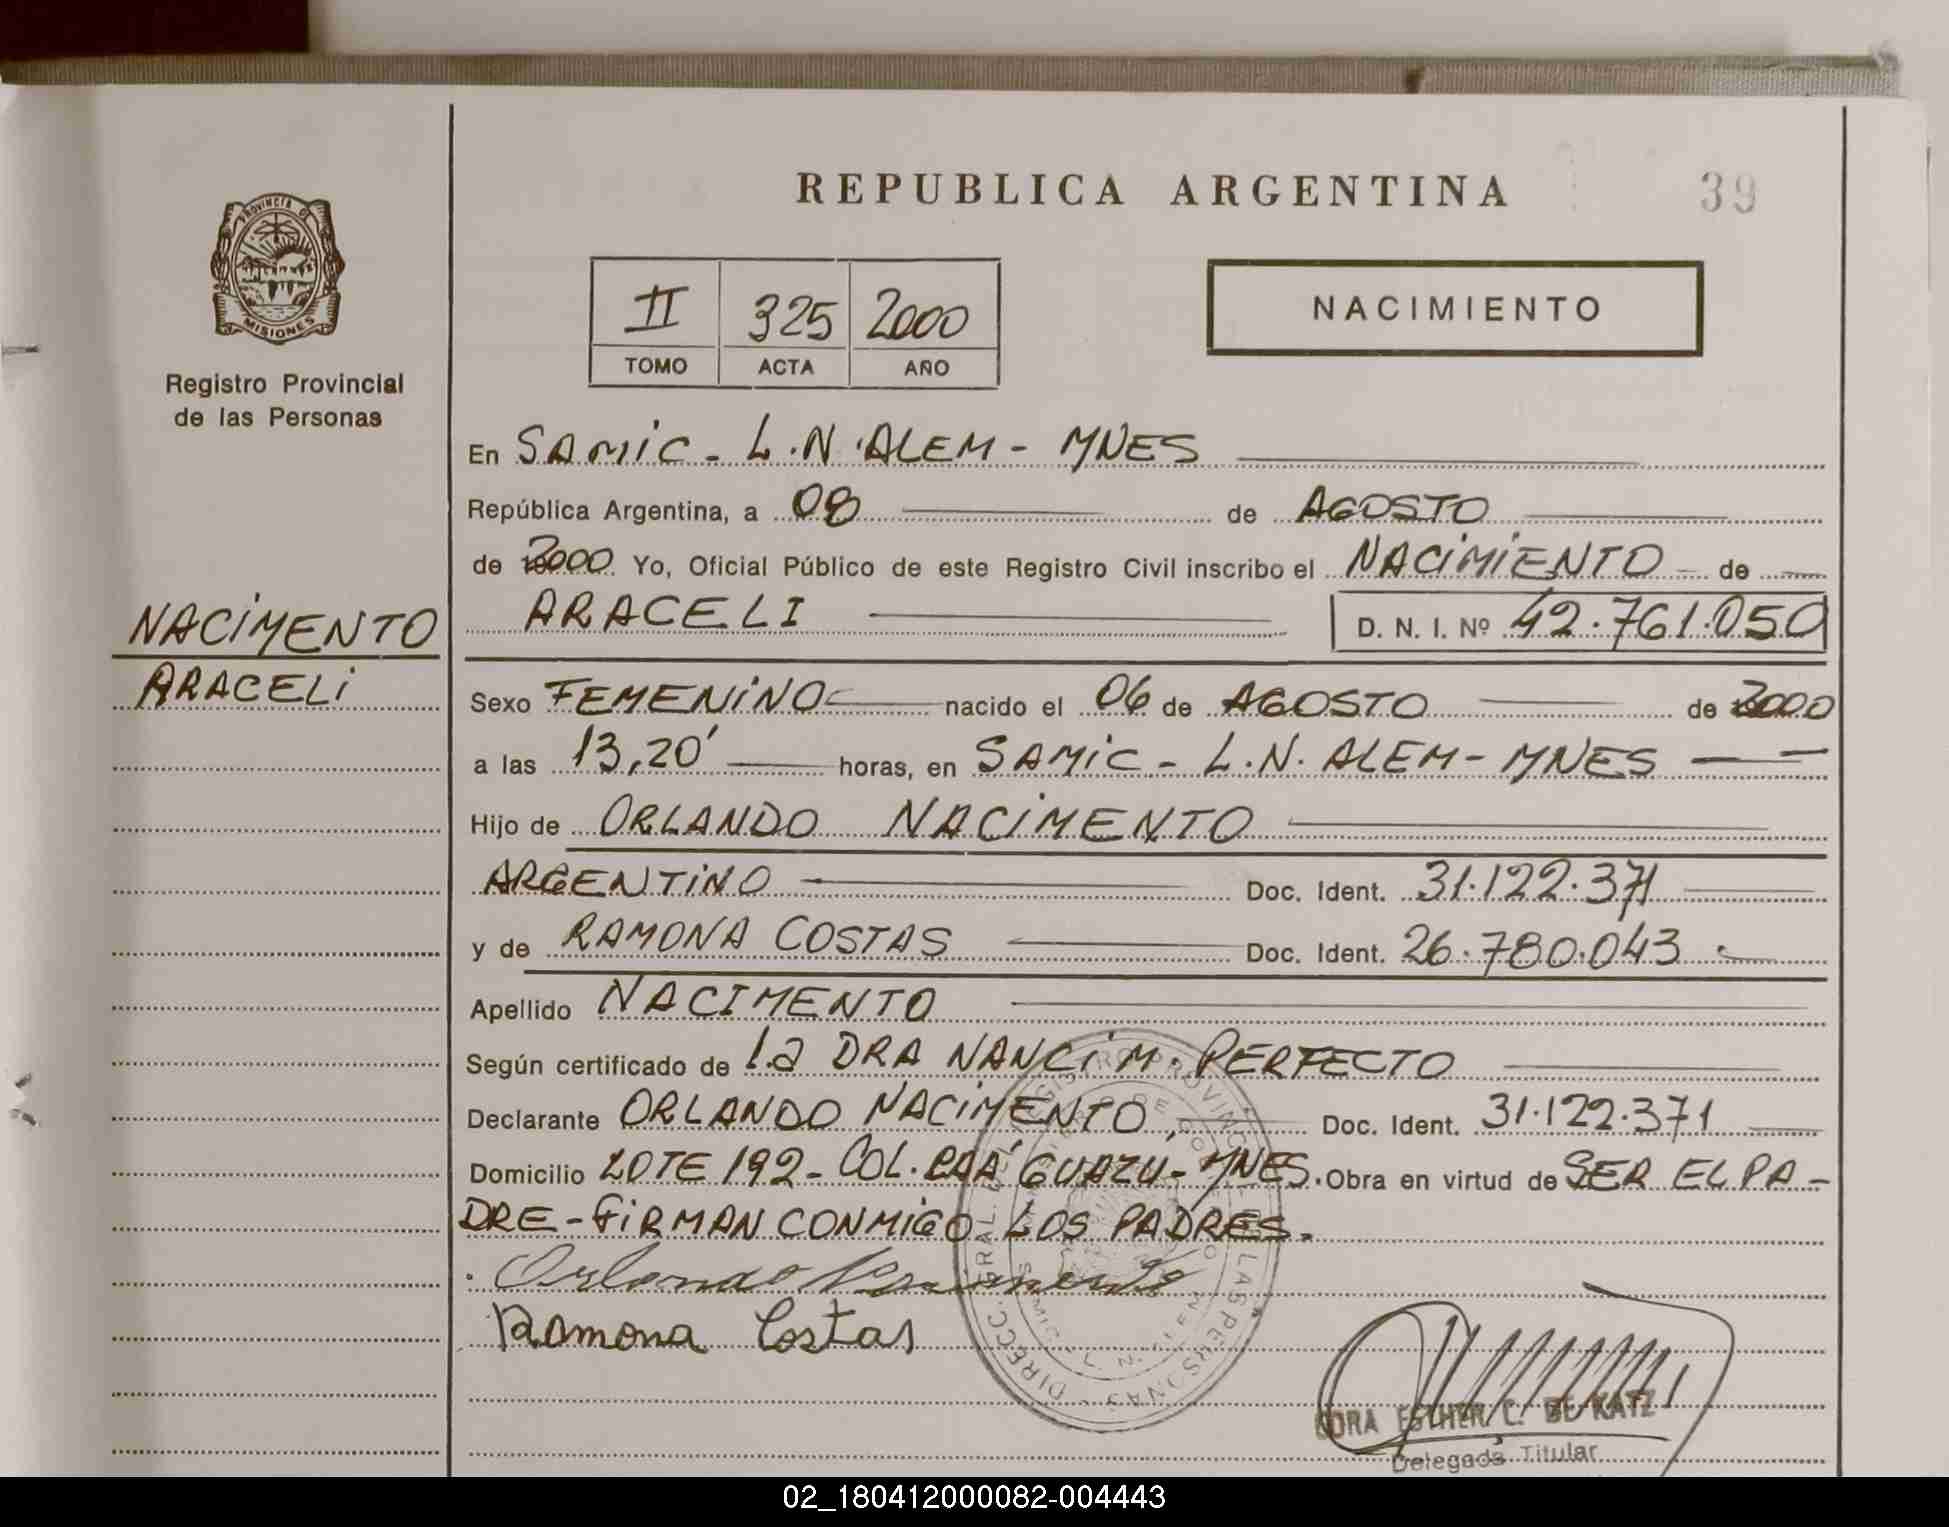 REPUBLICA ARGENTINA
39
PROVINCIA DE
MISIONES
Registro Provincial
de las Personas
II 325 2000
TOMO ACTA AÑO
NACIMIENTO
En SAMIC - L.N. ALEM - MNES
República Argentina, a 08 de AGOSTO
de 2000 Yo, Oficial Público de este Registro Civil inscribo el NACIMIENTO de
ARACELI D. N. I. Nº 42.761.050
NACIMENTO
ARACELI
Sexo FEMENINO nacido el 06 de AGOSTO de 2000
a las 13,20' horas, en SAMIC - L.N. ALEM - MNES
Hijo de ORLANDO NACIMENTO
ARGENTINO Doc. Ident. 31.122.371
y de RAMONA COSTAS Doc. Ident. 26.780.043
Apellido NACIMENTO
Según certificado de La DRA NANCI M. PERFECTO
Declarante ORLANDO NACIMENTO, Doc. Ident. 31.122.371
Domicilio LOTE 192 - COL. CAA GUAZU - MNES. Obra en virtud de SER EL PA-
DRE - FIRMAN CONMIGO LOS PADRES.
Orlando Nacimento
Ramona Costas
DORA ESTHER C. DE KATZ
Delegada Titular
02_180412000082-004443